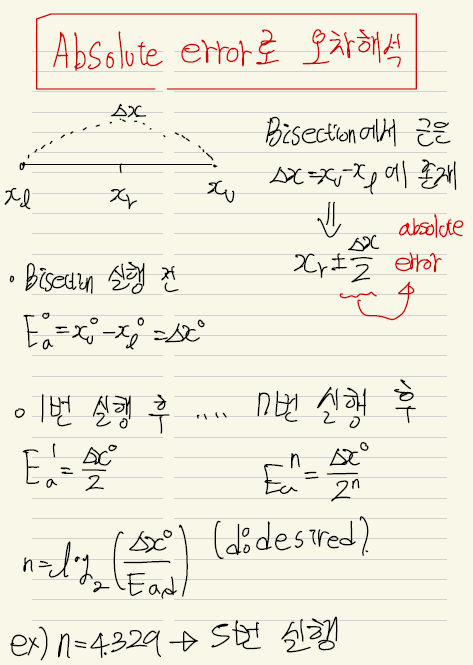 Absolute error로 오차해석
Δx
x_l x_r x_u
Bisection에서 근은
Δx = x_u - x_l 에 존재
⇓
x_r ± Δx/2
absolute
error
• Bisection 실행 전
E_a^0 = x_u^0 - x_l^0 = Δx^0
• 1번 실행 후 .... n번 실행 후
E_a^1 = Δx^0/2
E_a^n = Δx^0/2^n
n = log_2 (Δx^0/E_a,d) (d: desired).
ex) n = 4.329 → 5번 실행